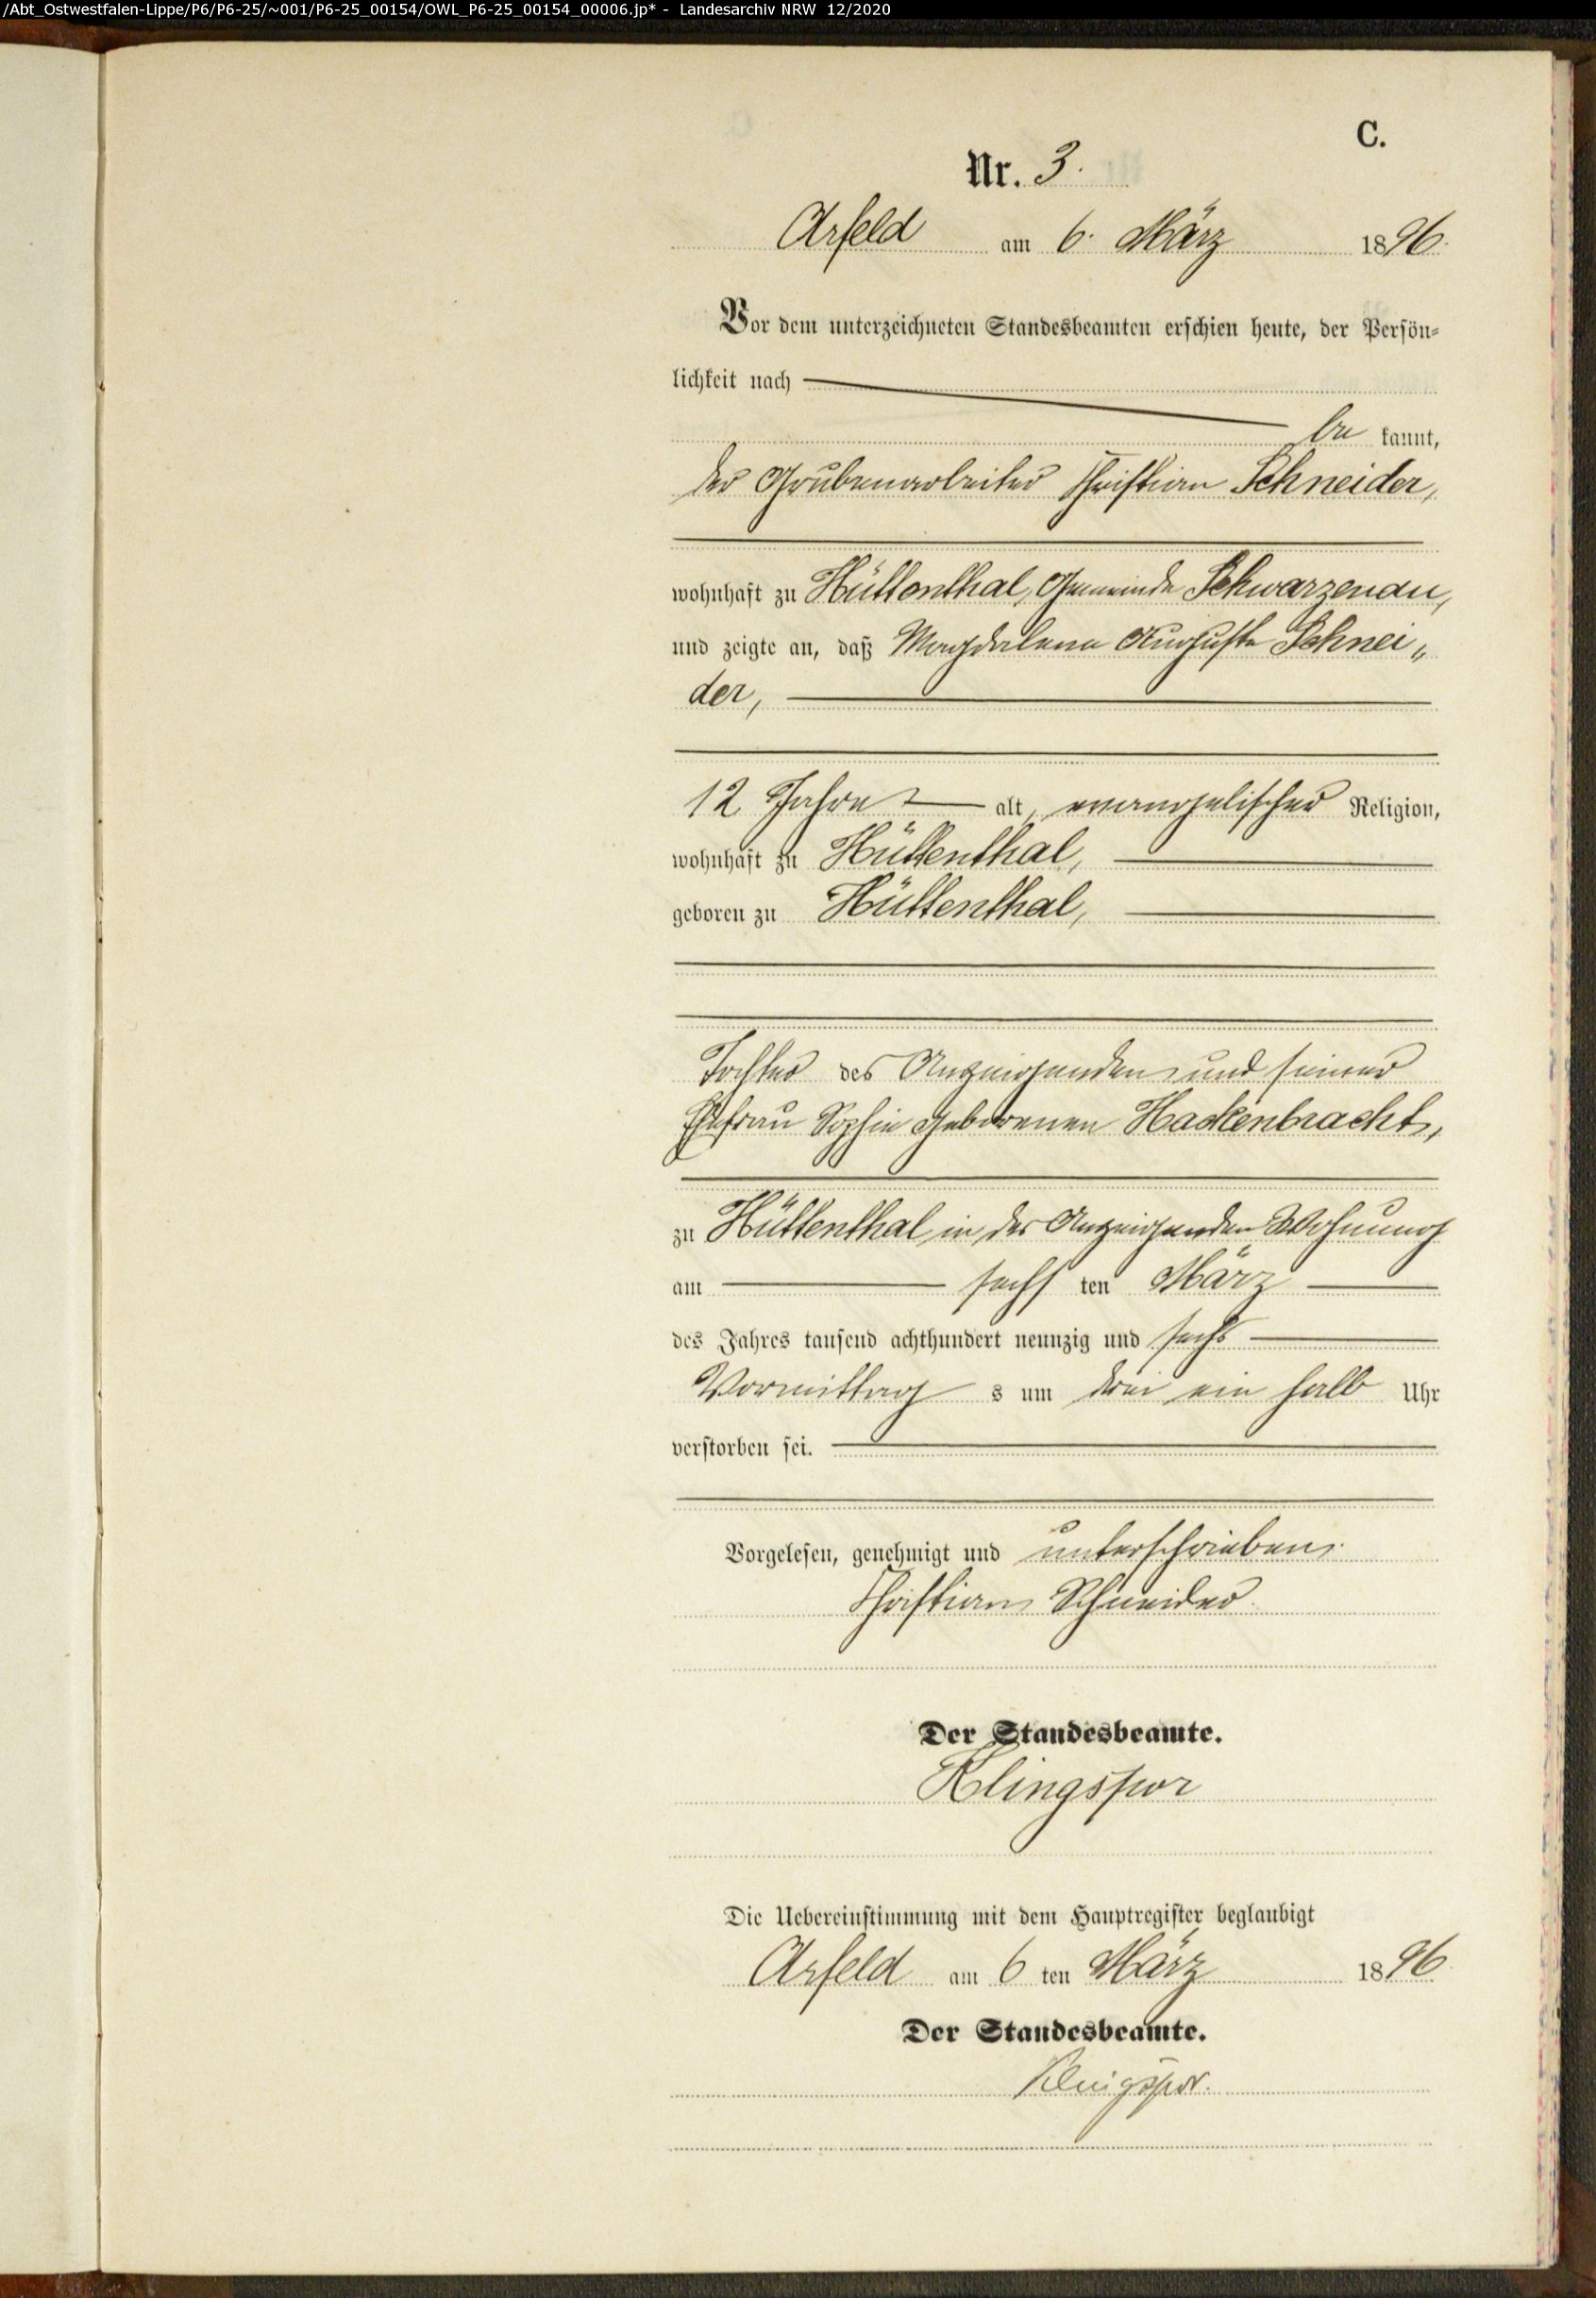 /Abt_Ostwestfalen-Lippe/P6/P6-25/~001/P6-25_00154/OWL_P6-25_00154_00006.jp* - Landesarchiv NRW 12/2020
C.
Nr. 3.
Arfeld am 6. März 1896.
Vor dem unterzeichneten Standesbeamten erschien heute, der Persön-
lichkeit nach
be kannt,
der Grubenarbeiter Christian Schneider,
wohnhaft zu Hüttenthal, Gemeinde Schwarzenau,
und zeigte an, daß Magdalena Auguste Schnei„
der,
12 Jahre alt, evangelischer Religion,
wohnhaft zu Hüttenthal,
geboren zu Hüttenthal,
Tochter des Anzeigenden und seiner
Ehefrau Sophie geborenen Hackenbracht,
zu Hüttenthal in des Anzeigenden Wohnung
am sechs ten März
des Jahres tausend achthundert neunzig und sechs
Vormittag s um drei ein halb Uhr
verstorben sei.
Vorgelesen, genehmigt und unterschrieben.
Christian Schneider.
Der Standesbeamte.
Klingspor
Die Uebereinstimmung mit dem Hauptregister beglaubigt
Arfeld am 6 ten März 1896
Der Standesbeamte.
Klingspor.